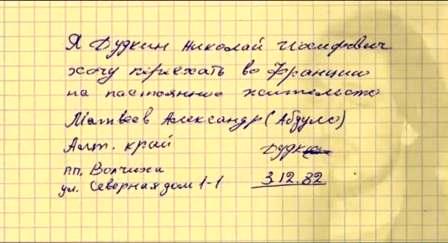 Я Дудкин Николай Иосифович
хочу приехать во Францию
на постоянное жительство
Матвеев Александр (Абдуло)
Алт. край
пп. Волчиха
ул. Северная дом 1-1
3.12.82